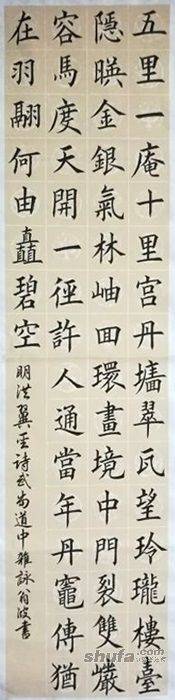 五里一庵十里宫丹墙翠瓦望玲瓏樓臺
隱暎金銀氣林岫回環畫境中門裂雙巖
容馬度天開一徑許人通當年丹竈傳猶
在羽翮何由矗碧空
明洪翼聖詩武當道中雜詠
shufa.com